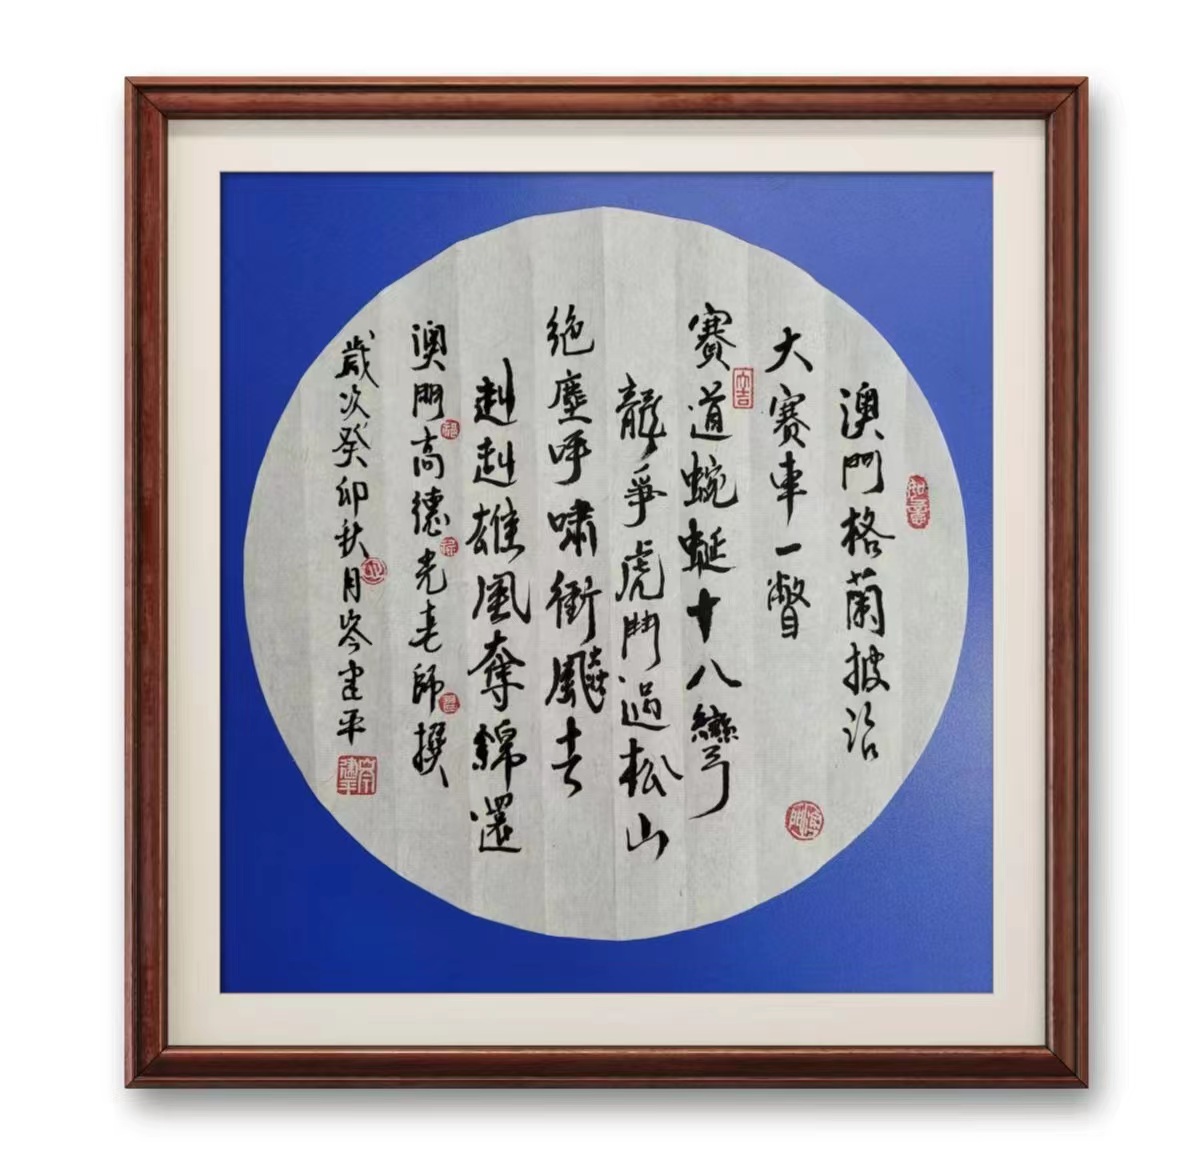 澳門格蘭披治
大賽車一瞥
賽道蜿蜒十八彎
龍爭虎鬥過松山
絕塵呼嘯衝飈去
赳赳雄風奪錦還
澳門高德光老師撰
歲次癸卯秋月岑建平
如意
大吉
澳門
岑建平